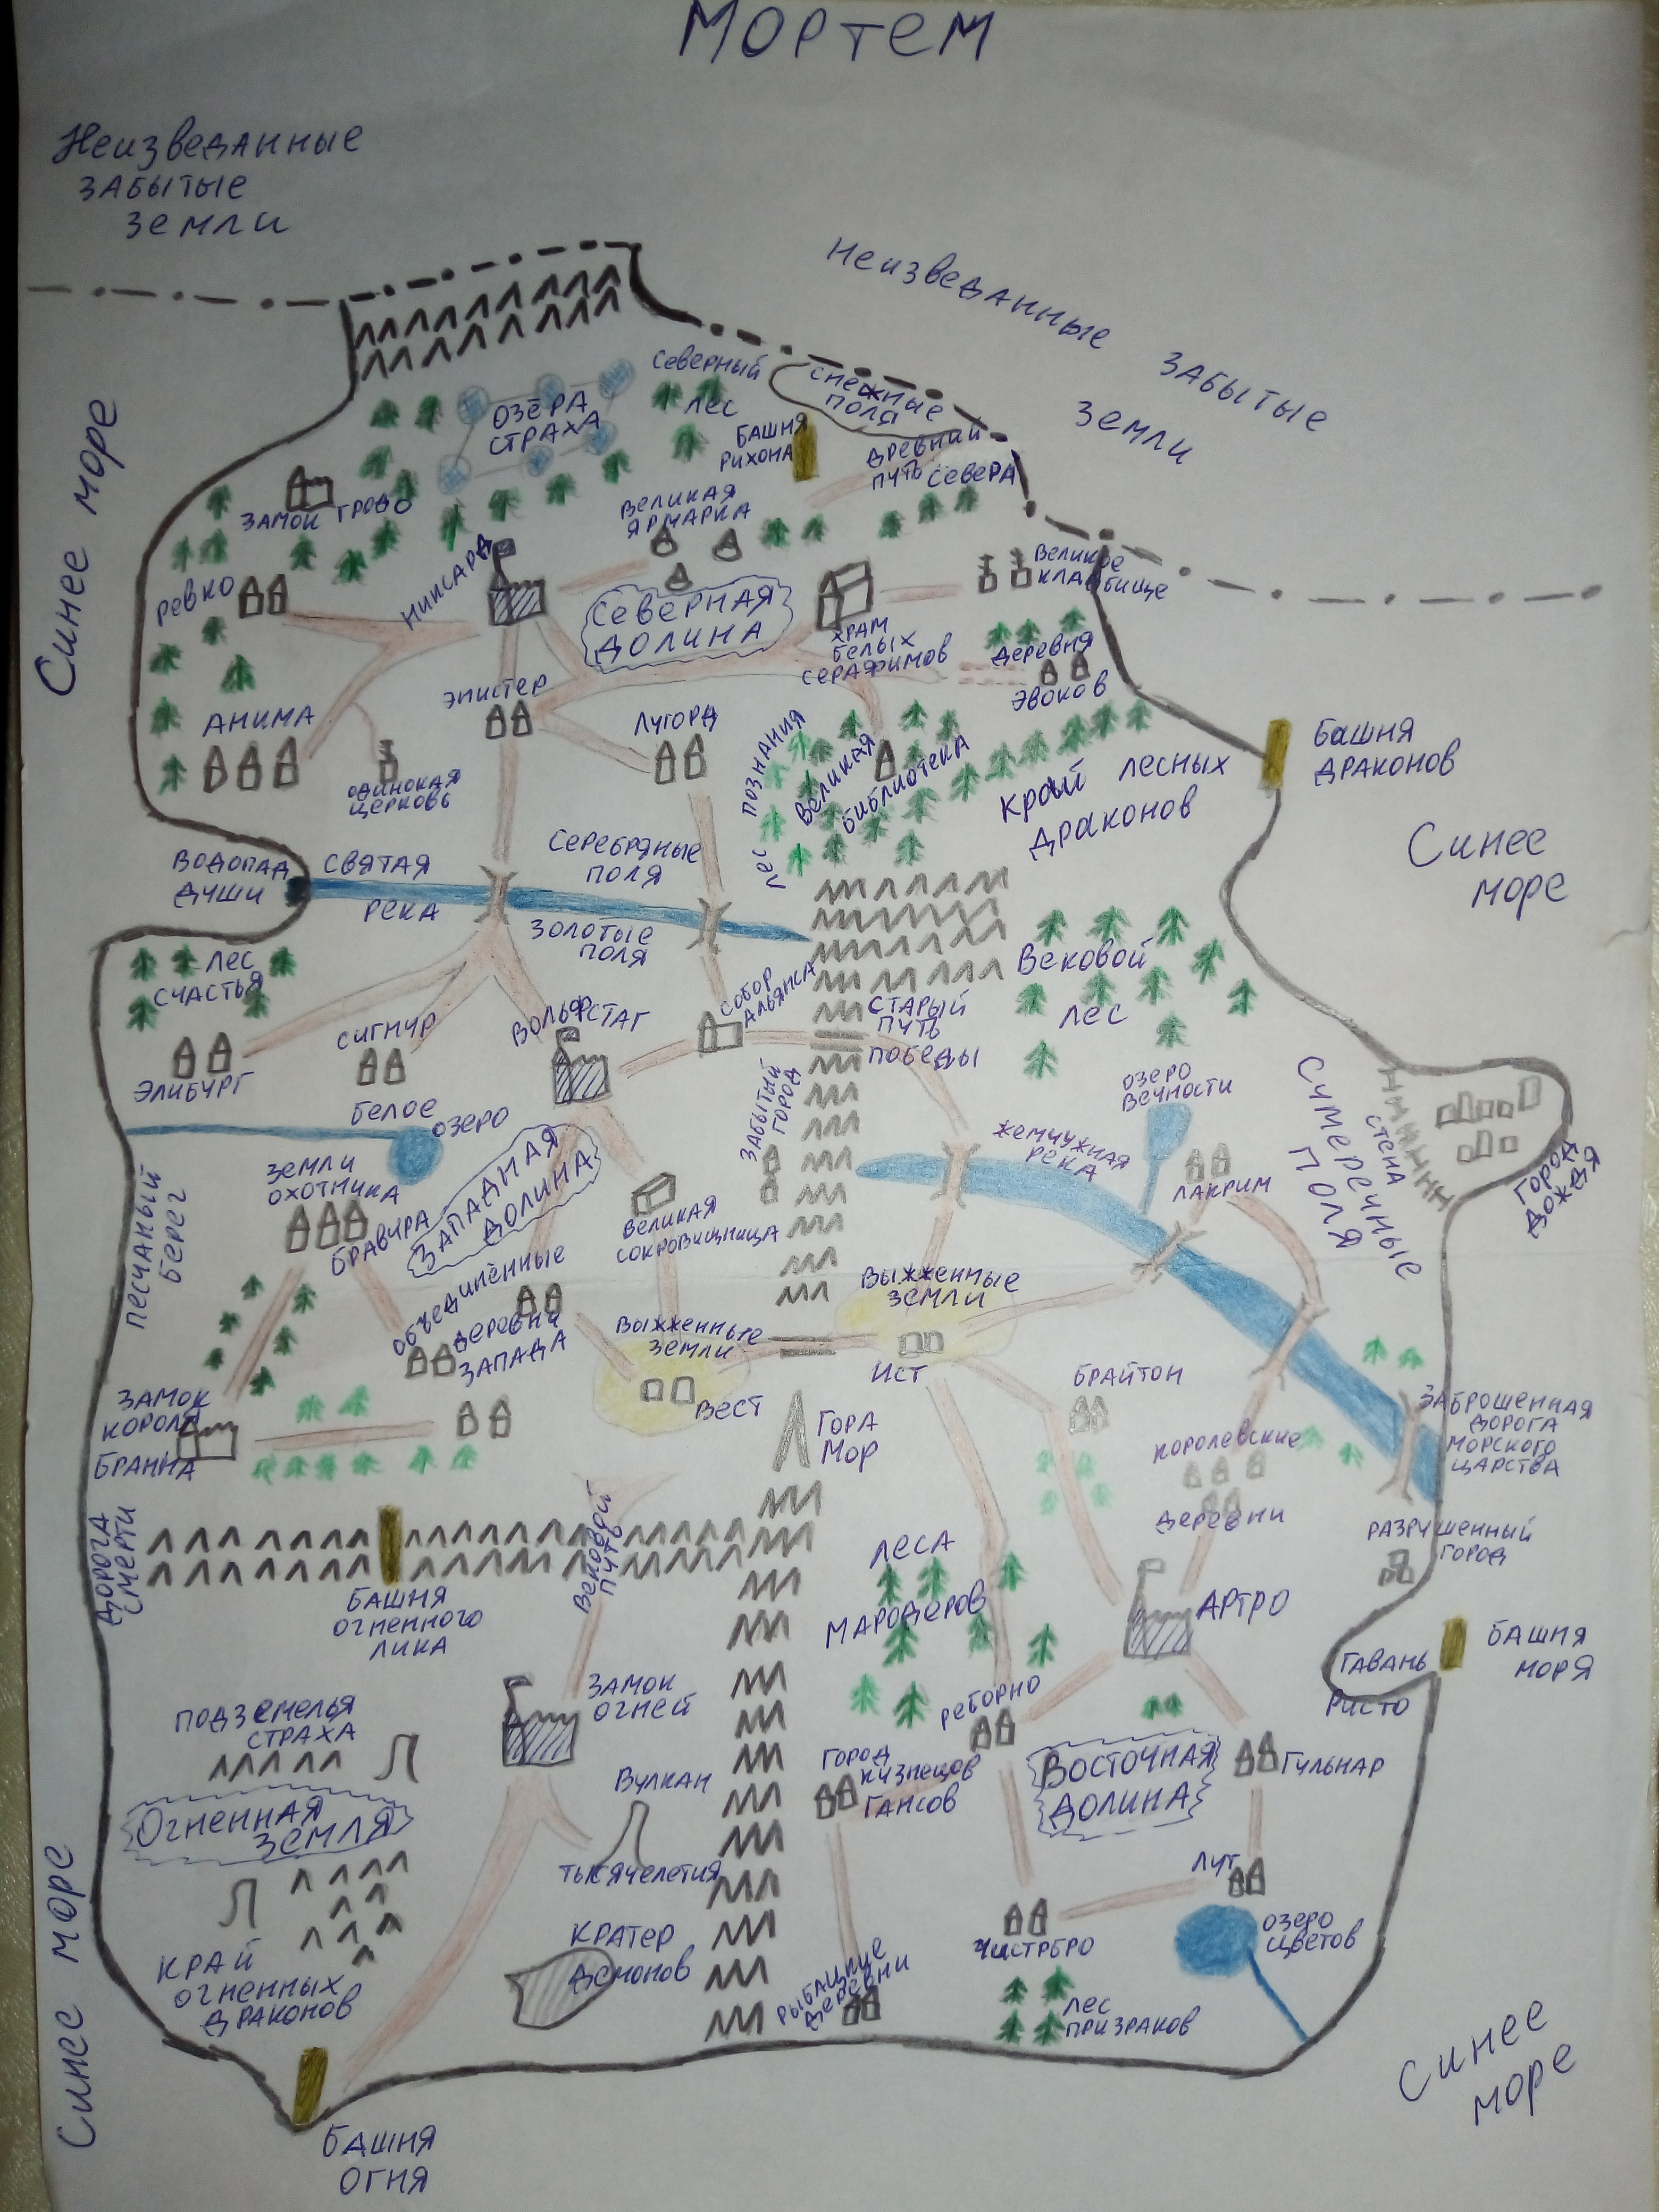 МОРТЕМ
Неизведанные
забытые
земли
Неизведанные забытые
земли
Синее море
Северный
лес
Озёра
страха
Снежные
поля
Башня
Рихона
Древний
путь севера
Замок Гродо
Великая
ярмарка
Ревко
Никсард
Северная
долина
Великое
кладбище
Храм
белых
серафимов
Деревня
эвоков
Эпистер
Анима
Лугорд
Одинокая
церковь
Лес познания
Великая
библиотека
Край лесных
драконов
Башня
драконов
Синее
море
Водопад
души
Святая
река
Серебряные
поля
Золотые
поля
Лес
счастья
Вековой
лес
Собор
Альянса
Старый
путь
победы
Элибург
Сигнур
Вольфстаг
Забытый
город
Белое
озеро
Озеро
вечности
Жемчужная
река
Лакрим
Сумеречные
поля
Стена
Город
дождя
Песчаный
берег
Земли
охотника
Бравура
Западная
долина
Великая
сокровищница
Объединённые
деревни
запада
Выжженные
земли
Вест
Выжженные
земли
Ист
Гора
Мор
Брайтон
Королевские
деревни
Заброшенная
дорога
морского
царства
Замок
короля
Бранна
Дорога
смерти
Вековой
путь
Башня
огненного
лика
Леса
мародеров
Артро
Разрушенный
город
Гавань
Ристо
Башня
моря
Подземелья
страха
Замок
огней
Реборно
Город
кузнецов
Гансов
Восточная
долина
Гульнар
Огненная
земля
Вулкан
тысячелетия
Лут
Озеро
цветов
Чистребро
Край
огненных
драконов
Кратер
демонов
Рыбацкие
деревни
Лес
призраков
Синее море
Синее
море
Башня
огня